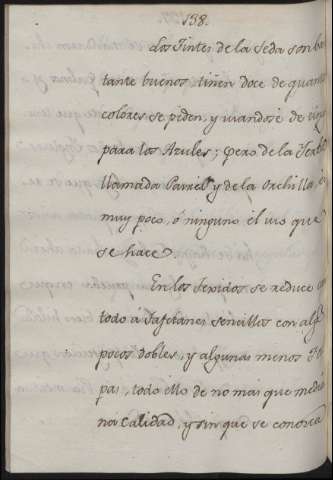 158.
Los Tintes de la Seda son bas
tante buenos tiñen doce de quantos
colores se piden, y usandose de
para los Azules; pero de la
llamada Pastel, y de la Orchilla, es
muy poco, ó ninguno el uso que
se hace.
En los Texidos se reduce
todo á Tafetanes sencillos con algs
pocos dobles, y algunas menos Fel
pas, todo ello de no mas que media
na Calidad, y sin que se conozca